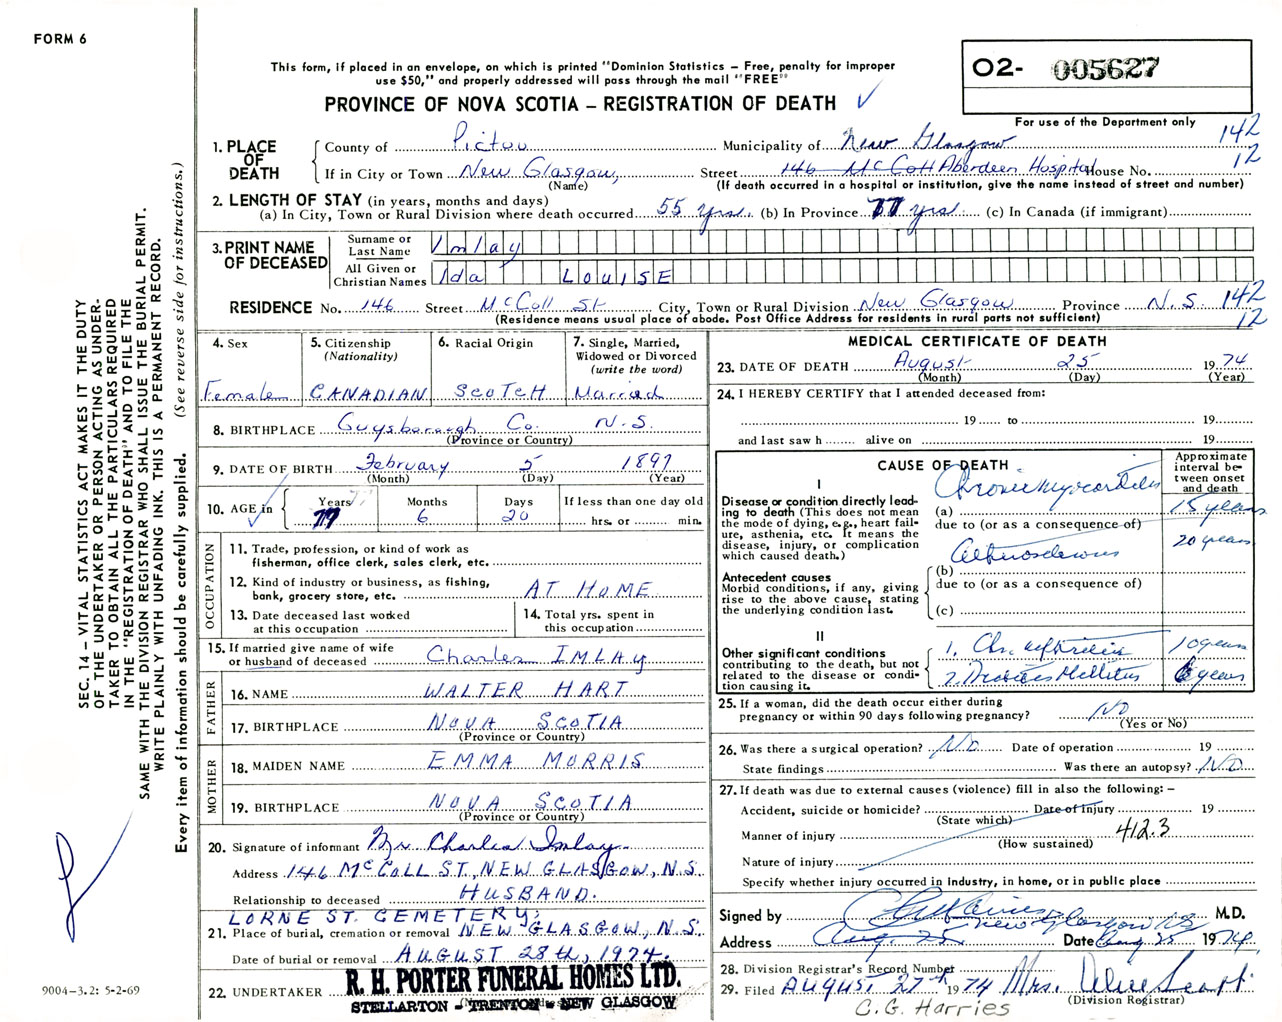 FORM 6
This form, if placed in an envelope, on which is printed "Dominion Statistics – Free, penalty for improper
use $50," and properly addressed will pass through the mail "FREE"
PROVINCE OF NOVA SCOTIA – REGISTRATION OF DEATH ✓
O2- 005627
For use of the Department only
1. PLACE OF DEATH
County of Pictou Municipality of New Glasgow 142
If in City or Town New Glasgow, Street 146 McColl Aberdeen Hospital House No. 12
(Name) (If death occurred in a hospital or institution, give the name instead of street and number)
2. LENGTH OF STAY (in years, months and days)
(a) In City, Town or Rural Division where death occurred 55 yrs. (b) In Province 77 yrs. (c) In Canada (if immigrant)
3. PRINT NAME OF DECEASED
Surname or Last Name Imlay
All Given or Christian Names Ida LOUISE
RESIDENCE No. 146 Street McColl St City, Town or Rural Division New Glasgow Province N.S. 142
(Residence means usual place of abode. Post Office Address for residents in rural parts not sufficient) 12
4. Sex Female
5. Citizenship (Nationality) CANADIAN
6. Racial Origin SCOTCH
7. Single, Married, Widowed or Divorced (write the word) Married
8. BIRTHPLACE Guysborough Co. N.S.
(Province or Country)
9. DATE OF BIRTH February 5 1897
(Month) (Day) (Year)
10. AGE in Years 77 Months 6 Days 20 If less than one day old
hrs. or min.
OCCUPATION
11. Trade, profession, or kind of work as
fisherman, office clerk, sales clerk, etc.
12. Kind of industry or business, as fishing,
bank, grocery store, etc. AT HOME
13. Date deceased last worked
at this occupation
14. Total yrs. spent in
this occupation
15. If married give name of wife
or husband of deceased Charles IMLAY
FATHER
16. NAME WALTER HART
17. BIRTHPLACE NOVA SCOTIA
(Province or Country)
MOTHER
18. MAIDEN NAME EMMA MORRIS
19. BIRTHPLACE NOVA SCOTIA
(Province or Country)
20. Signature of informant Mr. Charles Imlay
Address 146 McColl ST., NEW GLASGOW, N.S.
Relationship to deceased HUSBAND.
LORNE ST. CEMETERY,
21. Place of burial, cremation or removal NEW GLASGOW, N.S.
Date of burial or removal AUGUST 28th, 1974.
22. UNDERTAKER R. H. PORTER FUNERAL HOMES LTD.
STELLARTON – TRENTON – NEW GLASGOW
MEDICAL CERTIFICATE OF DEATH
23. DATE OF DEATH August 25 1974
(Month) (Day) (Year)
24. I HEREBY CERTIFY that I attended deceased from:
19 to 19
and last saw h alive on 19
CAUSE OF DEATH
Approximate interval between onset and death
I
Disease or condition directly leading to death (This does not mean the mode of dying, e.g., heart failure, asthenia, etc. It means the disease, injury, or complication which caused death.)
(a) Chronic myocarditis 15 years
due to (or as a consequence of)
20 years
Antecedent causes
Morbid conditions, if any, giving rise to the above cause, stating the underlying condition last.
(b)
due to (or as a consequence of)
(c)
II
Other significant conditions contributing to the death, but not related to the disease or condition causing it.
1. Chr. nephritis 10 years
2. Diabetes Mellitus 6 years
25. If a woman, did the death occur either during
pregnancy or within 90 days following pregnancy? NO
(Yes or No)
26. Was there a surgical operation? NO Date of operation 19
State findings Was there an autopsy? NO
27. If death was due to external causes (violence) fill in also the following: –
Accident, suicide or homicide? Date of injury 19
(State which)
Manner of injury 412.3
(How sustained)
Nature of injury
Specify whether injury occurred in industry, in home, or in public place
Signed by M.D.
Address New Glasgow NS Date Aug 25 1974
Aug. 25
28. Division Registrar's Record Number
29. Filed AUGUST 27th 1974 Mrs.
(Division Registrar)
C.G. Harries
SEC. 14 – VITAL STATISTICS ACT MAKES IT THE DUTY
OF THE UNDERTAKER OR PERSON ACTING AS UNDER-
TAKER TO OBTAIN ALL THE PARTICULARS REQUIRED
IN THE "REGISTRATION OF DEATH" AND TO FILE THE
SAME WITH THE DIVISION REGISTRAR WHO SHALL ISSUE THE BURIAL PERMIT.
WRITE PLAINLY WITH UNFADING INK. THIS IS A PERMANENT RECORD.
Every item of information should be carefully supplied. (See reverse side for instructions.)
9004–3.2: 5-2-69